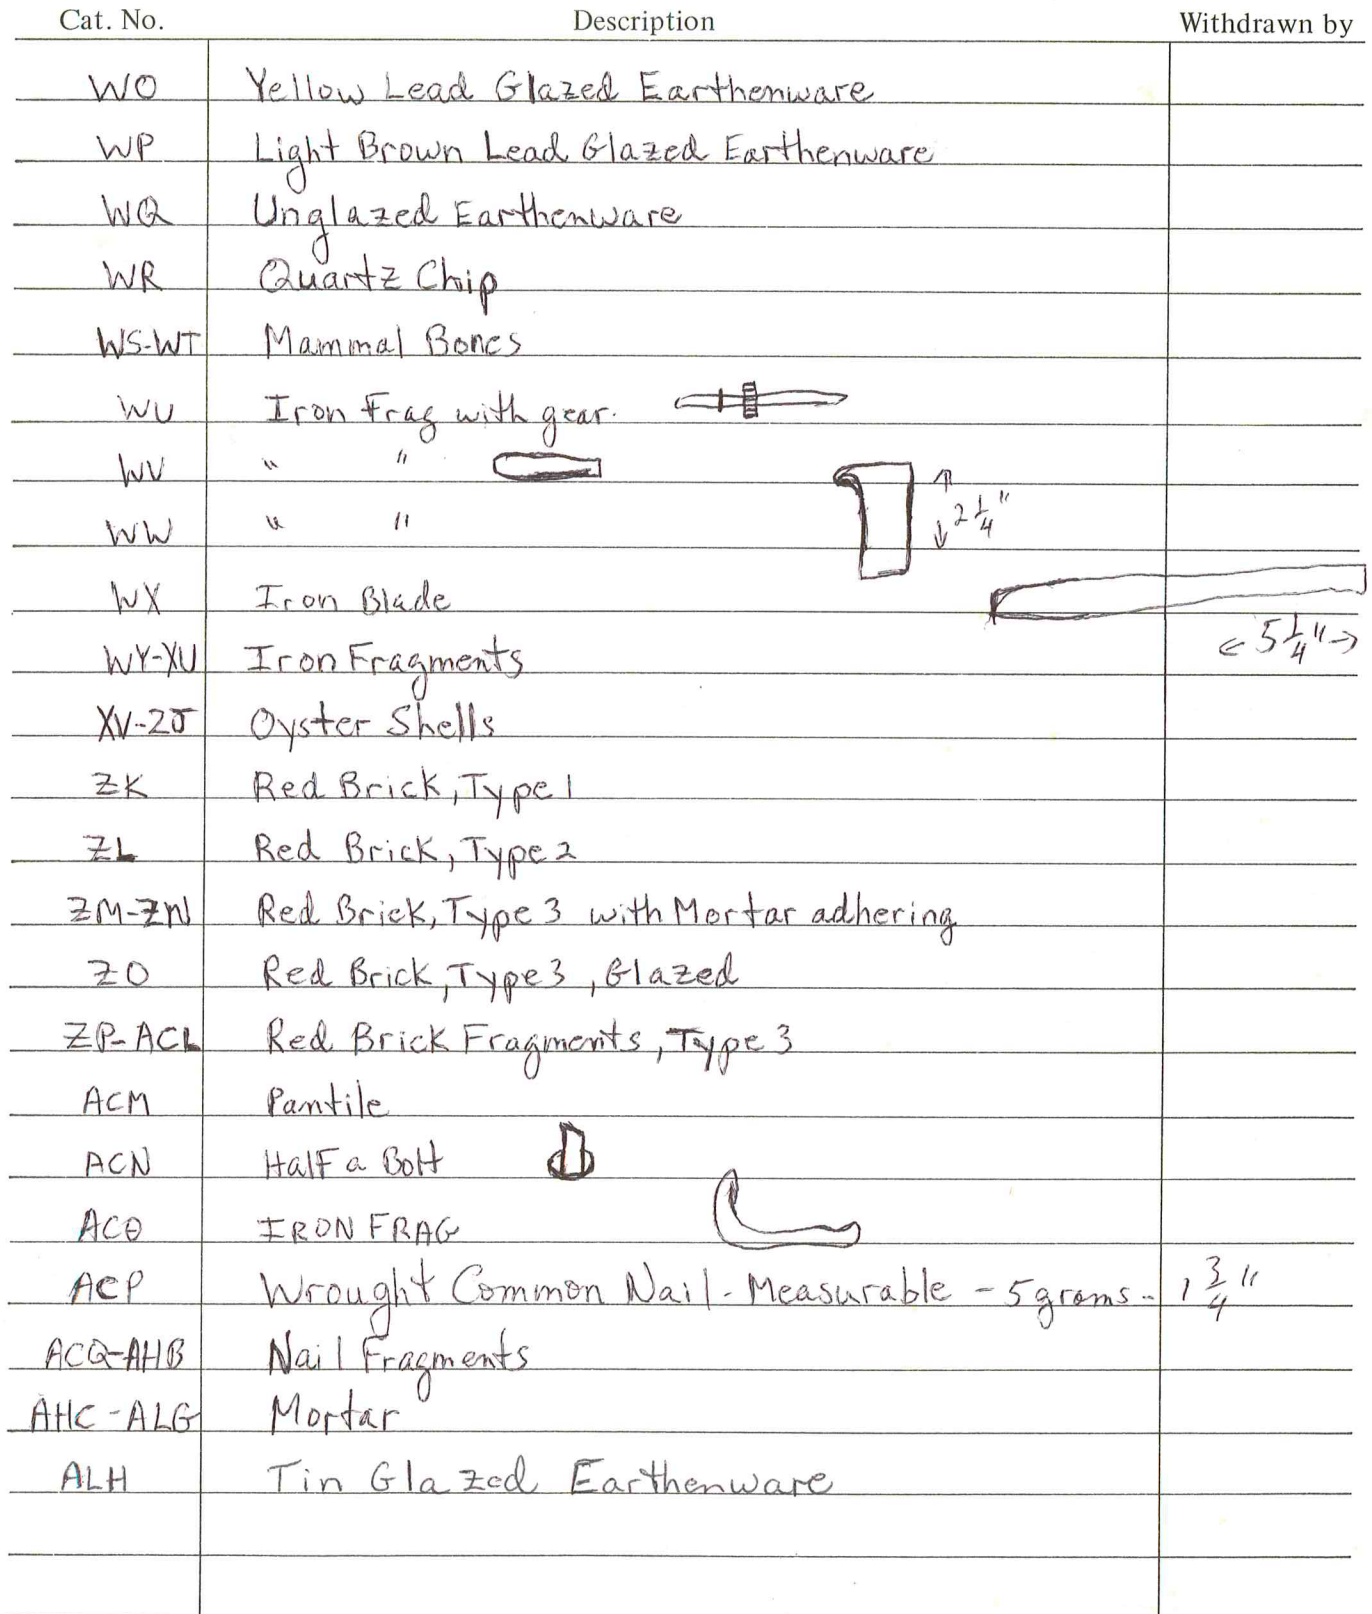 Cat. No. Description Withdrawn by
WO Yellow Lead Glazed Earthenware
WP Light Brown Lead Glazed Earthenware
WQ Unglazed Earthenware
WR Quartz Chip
WS-WT Mammal Bones
WU Iron Frag with gear.
WV " "
WW " " 2 1/4"
WX Iron Blade
5 1/4"
WY-XU Iron Fragments
XV-ZJ Oyster Shells
ZK Red Brick, Type 1
ZL Red Brick, Type 2
ZM-ZN Red Brick, Type 3 with Mortar adhering
ZO Red Brick, Type 3, Glazed
ZP-ACL Red Brick Fragments, Type 3
ACM Pantile
ACN Half a Bolt
ACO IRON FRAG
ACP Wrought Common Nail - Measurable - 5 grams - 1 3/4"
ACQ-AHB Nail Fragments
AHC-ALG Mortar
ALH Tin Glazed Earthenware